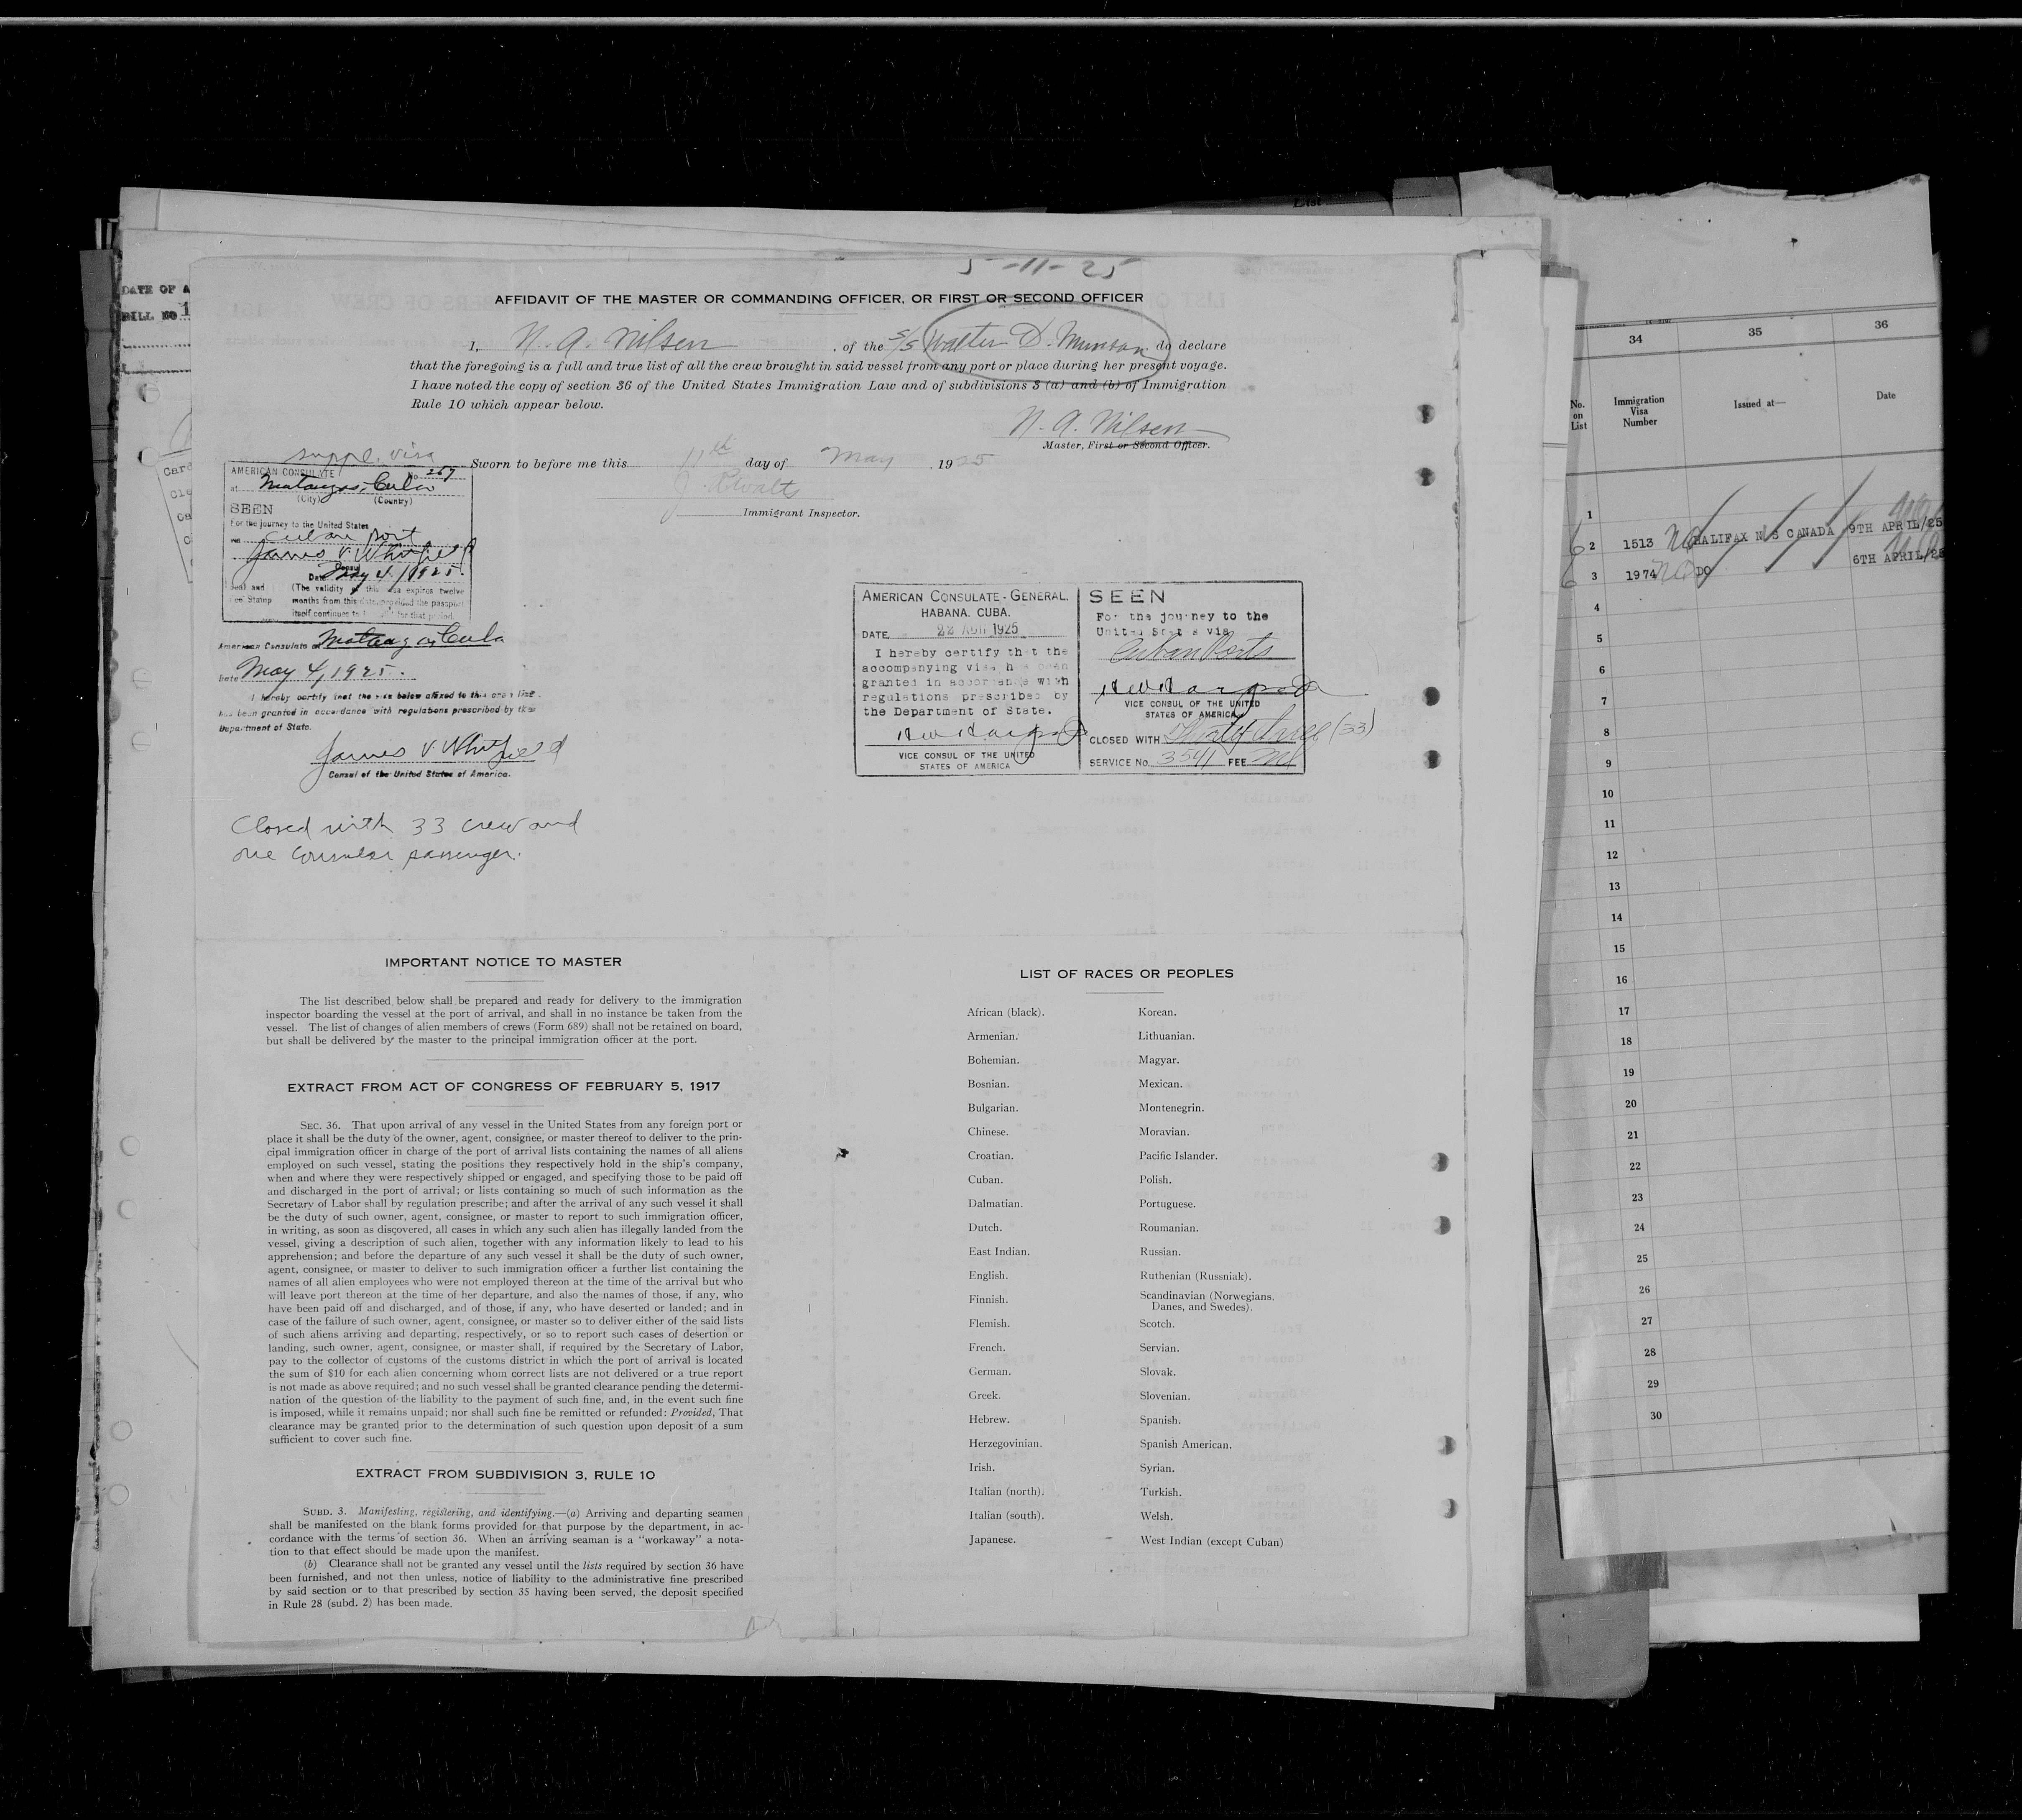 List
5-11-25
AFFIDAVIT OF THE MASTER OR COMMANDING OFFICER, OR FIRST OR SECOND OFFICER
I, N. A. Nilsen, of the S/S Walter D. Munson, do declare
that the foregoing is a full and true list of all the crew brought in said vessel from any port or place during her present voyage.
I have noted the copy of section 36 of the United States Immigration Law and of subdivisions 3 (a) and (b) of Immigration
Rule 10 which appear below.
N. A. Nilsen
Master, First or Second Officer.
Sworn to before me this 11th day of May, 1925
Immigrant Inspector.
DATE OF A
BILL NO 1
suppl. visa
AMERICAN CONSULATE No 267
at Matanzas, Cuba
(City) (Country)
SEEN
For the journey to the United States
via Cuban port
James V. Whitfield
Consul
Date May 4/1925.
Seal and (The validity of this visa expires twelve
Fee Stamp months from this date, provided the passport
itself continues to for that period.
American Consulate at Matanzas, Cuba
Date May 4, 1925.
I hereby certify that the visa below affixed to this crew list
has been granted in accordance with regulations prescribed by the
Department of State.
James V. Whitfield
Consul of the United States of America.
Closed with 33 crew and
one Consular passenger.
AMERICAN CONSULATE-GENERAL.
HABANA. CUBA.
DATE 22 1925
I hereby certify that the
accompanying visa has been
granted in accordance with
regulations prescribed by
the Department of State.
VICE CONSUL OF THE UNITED
STATES OF AMERICA
SEEN
For the journey to the
United States via
Cuban Ports
VICE CONSUL OF THE UNITED
STATES OF AMERICA
CLOSED WITH Thirty three (33)
SERVICE No. 3541 FEE
IMPORTANT NOTICE TO MASTER
The list described below shall be prepared and ready for delivery to the immigration
inspector boarding the vessel at the port of arrival, and shall in no instance be taken from the
vessel. The list of changes of alien members of crews (Form 689) shall not be retained on board,
but shall be delivered by the master to the principal immigration officer at the port.
EXTRACT FROM ACT OF CONGRESS OF FEBRUARY 5, 1917
SEC. 36. That upon arrival of any vessel in the United States from any foreign port or
place it shall be the duty of the owner, agent, consignee, or master thereof to deliver to the prin-
cipal immigration officer in charge of the port of arrival lists containing the names of all aliens
employed on such vessel, stating the positions they respectively hold in the ship's company,
when and where they were respectively shipped or engaged, and specifying those to be paid off
and discharged in the port of arrival; or lists containing so much of such information as the
Secretary of Labor shall by regulation prescribe; and after the arrival of any such vessel it shall
be the duty of such owner, agent, consignee, or master to report to such immigration officer,
in writing, as soon as discovered, all cases in which any such alien has illegally landed from the
vessel, giving a description of such alien, together with any information likely to lead to his
apprehension; and before the departure of any such vessel it shall be the duty of such owner,
agent, consignee, or master to deliver to such immigration officer a further list containing the
names of all alien employees who were not employed thereon at the time of the arrival but who
will leave port thereon at the time of her departure, and also the names of those, if any, who
have been paid off and discharged, and of those, if any, who have deserted or landed; and in
case of the failure of such owner, agent, consignee, or master so to deliver either of the said lists
of such aliens arriving and departing, respectively, or so to report such cases of desertion or
landing, such owner, agent, consignee, or master shall, if required by the Secretary of Labor,
pay to the collector of customs of the customs district in which the port of arrival is located
the sum of $10 for each alien concerning whom correct lists are not delivered or a true report
is not made as above required; and no such vessel shall be granted clearance pending the determi-
nation of the question of the liability to the payment of such fine, and, in the event such fine
is imposed, while it remains unpaid; nor shall such fine be remitted or refunded: Provided, That
clearance may be granted prior to the determination of such question upon deposit of a sum
sufficient to cover such fine.
EXTRACT FROM SUBDIVISION 3, RULE 10
SUBD. 3. Manifesting, registering, and identifying.—(a) Arriving and departing seamen
shall be manifested on the blank forms provided for that purpose by the department, in ac-
cordance with the terms of section 36. When an arriving seaman is a "workaway" a nota-
tion to that effect should be made upon the manifest.
(b) Clearance shall not be granted any vessel until the lists required by section 36 have
been furnished, and not then unless, notice of liability to the administrative fine prescribed
by said section or to that prescribed by section 35 having been served, the deposit specified
in Rule 28 (subd. 2) has been made.
LIST OF RACES OR PEOPLES
African (black). Korean.
Armenian. Lithuanian.
Bohemian. Magyar.
Bosnian. Mexican.
Bulgarian. Montenegrin.
Chinese. Moravian.
Croatian. Pacific Islander.
Cuban. Polish.
Dalmatian. Portuguese.
Dutch. Roumanian.
East Indian. Russian.
English. Ruthenian (Russniak).
Finnish. Scandinavian (Norwegians,
Danes, and Swedes).
Flemish. Scotch.
French. Servian.
German. Slovak.
Greek. Slovenian.
Hebrew. Spanish.
Herzegovinian. Spanish American.
Irish. Syrian.
Italian (north). Turkish.
Italian (south). Welsh.
Japanese. West Indian (except Cuban)
34 35 36
No. on List
Immigration Visa Number
Issued at—
Date
1
2 1513 HALIFAX N S CANADA 9TH APRIL/25
3 1974 DO 6TH APRIL/25
4
5
6
7
8
9
10
11
12
13
14
15
16
17
18
19
20
21
22
23
24
25
26
27
28
29
30